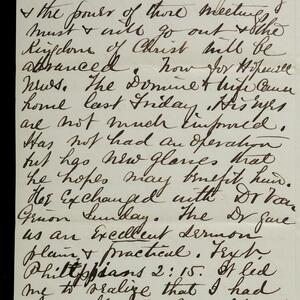 & the power of those meetings
must & will go out & the
Kingdom of Christ will be
advanced. Now for Hopewell
News. The Domine & wife came
home last Friday. His eyes
are not much improved.
Has not had an operation
but has New Glasses that
he hopes may benefit him.
He Exchanged with Dr Van
Sunday. The Dr gave
us an Excellent sermon
plain & Practical. Text.
Phillippians 2:15. It led
me to realize that I had